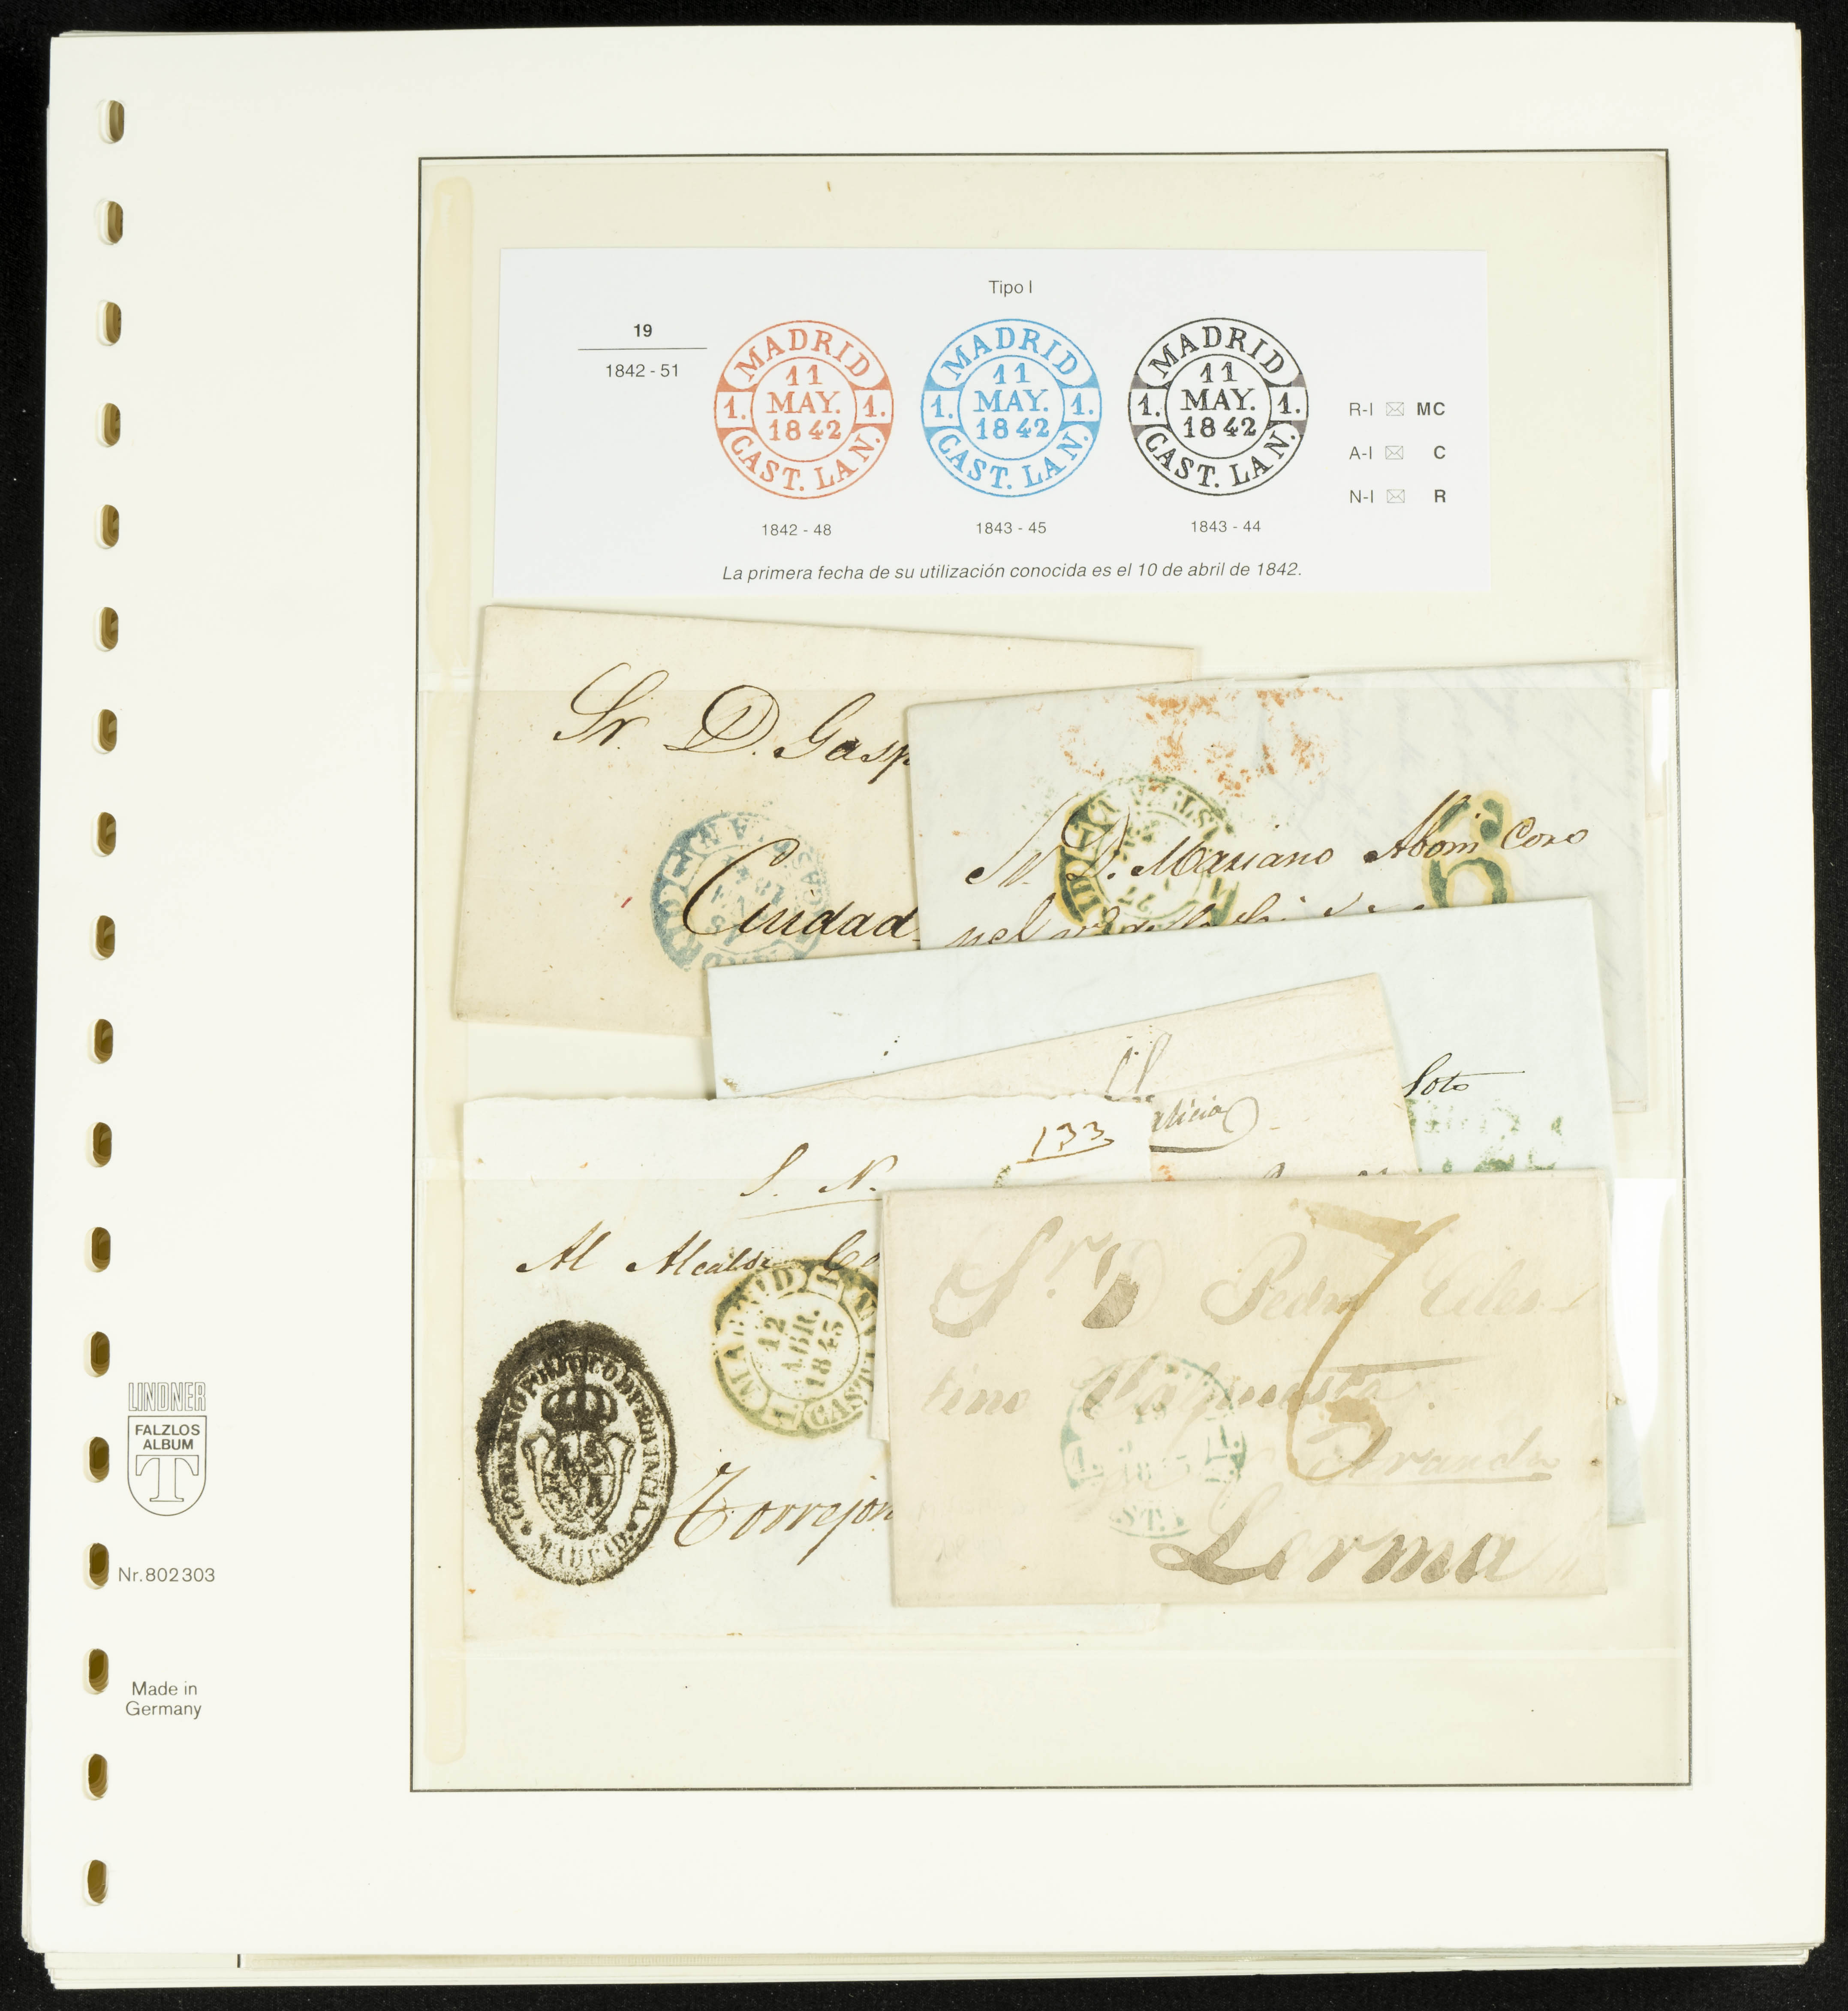 Tipo I
19
1842 - 51
MADRID
11
MAY.
1842
1. 1.
CAST. LA N.
MADRID
11
MAY.
1842
1. 1.
CAST. LA N.
MADRID
11
MAY.
1842
1. 1.
CAST. LA N.
R-I MC
A-I C
N-I R
1842 - 48
1843 - 45
1843 - 44
La primera fecha de su utilización conocida es el 10 de abril de 1842.
Sr. D. Gasp
Ciudad
Sr. D. Mariano
6
Soto
133
S. N.
Al Alcalde
MADRID
12
ABR.
1845
CAST.
MADRID
Torrejon
Sr. D Pedro
7
Aranda
Lerma
LINDNER
FALZLOS
ALBUM
T
Nr. 802303
Made in
Germany